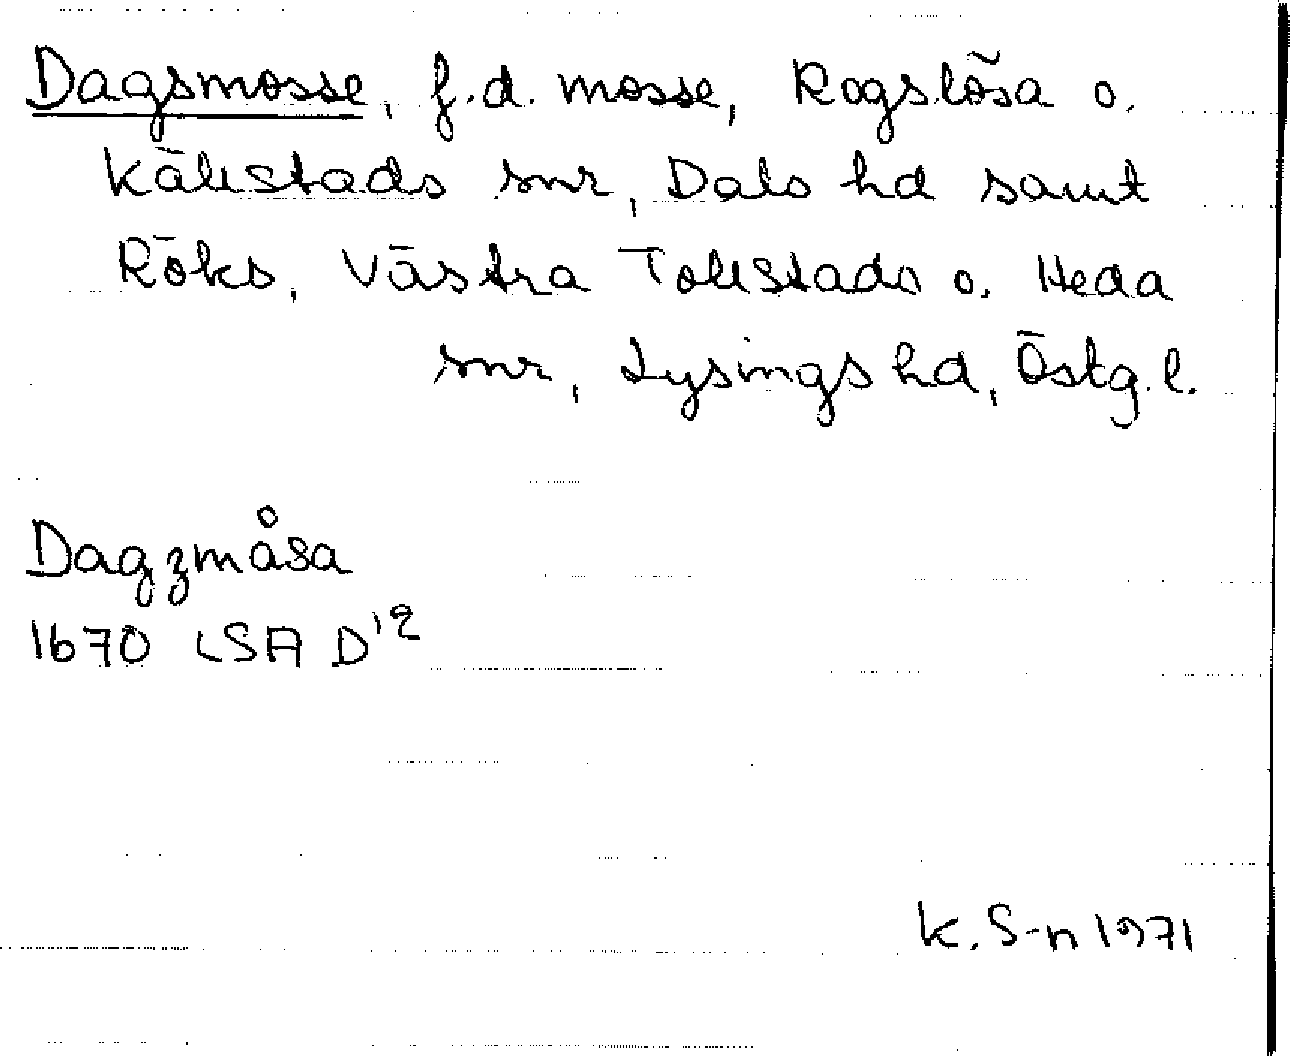 Dagsmosse, f.d. mosse, Rogslösa o.
Källstads snr, Dals hd samt
Röks, Västra Tollstads o. Heda
snr, Lysings hd, Östg. l.
Dagzmåsa
1670 LSA D12
K. S-n 1971